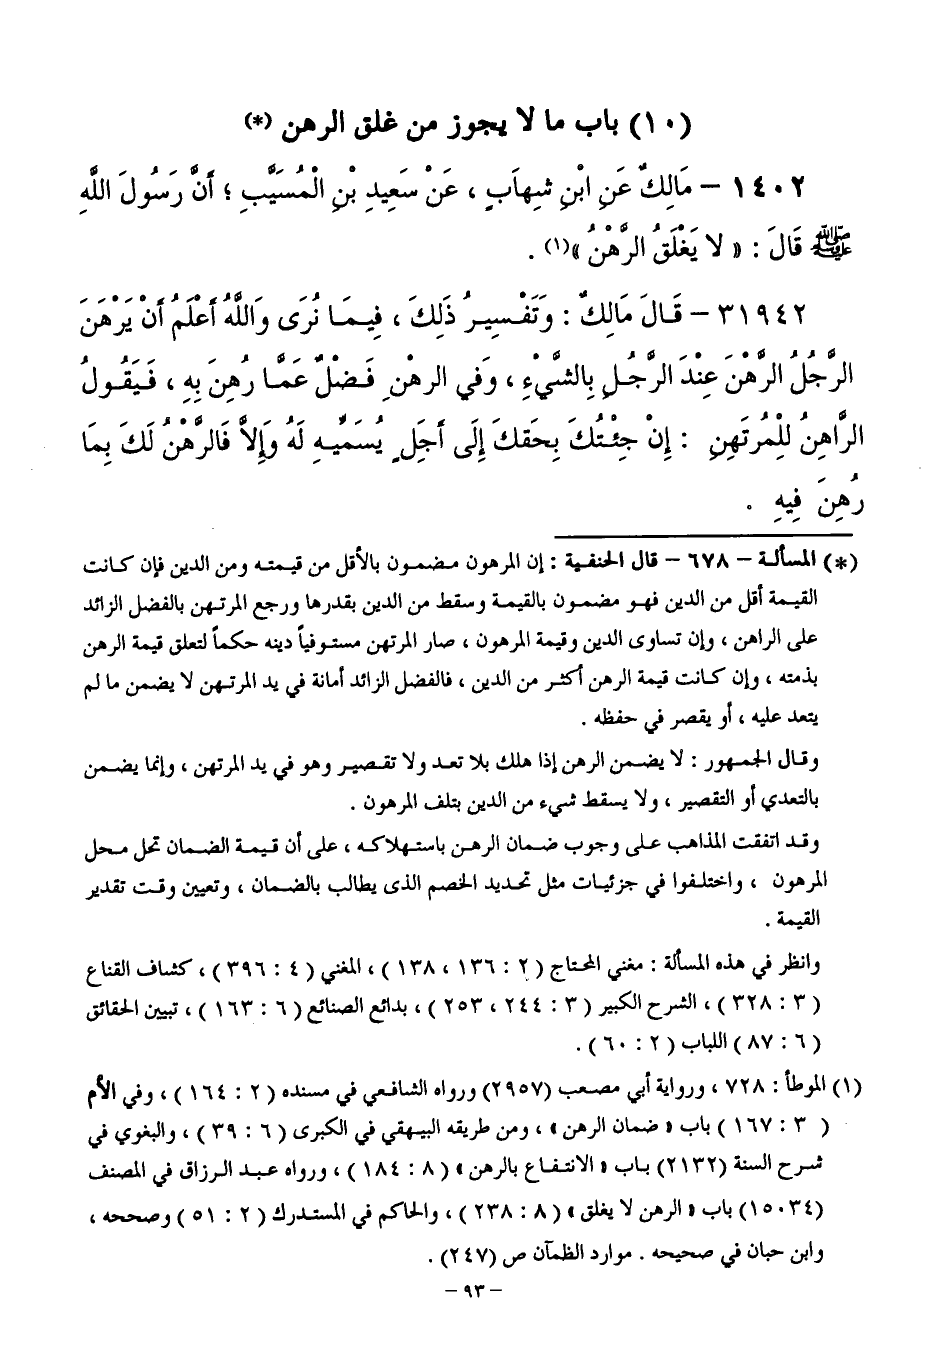 (١٠) باب ما لا يجوز من غلق الرهن (*)
١٤٠٢ – مَالِكٌ عَنِ ابْنِ شِهَابٍ ، عَنْ سَعِيدِ بْنِ الْمُسَيَّبِ ؛ أَنَّ رَسُولَ اللَّهِ
ﷺ قَالَ : « لا يَغْلَقُ الرَّهْنُ »(١) .
٣١٩٤٢ – قَالَ مَالِكٌ : وَتَفْسِيرُ ذَلِكَ ، فِيمَا نُرَى وَاللَّهُ أَعْلَمُ أَنْ يَرْهَنَ
الرَّجُلُ الرَّهْنَ عِنْدَ الرَّجُلِ بِالشَّيْءِ ، وَفي الرهْنِ فَضْلٌ عَمَّا رُهِنَ بِهِ ، فَيَقُولُ
الرَّاهِنُ لِلْمُرتَهِنِ : إِنْ جِئْتُكَ بِحَقكَ إِلَى أَجَلٍ يُسَمِّيهِ لَهُ وَإِلاَّ فَالرَّهْنُ لَكَ بِمَا
رُهِنَ فِيهِ .
(*) المسألة – ٦٧٨ – قال الحنفية : إن المرهون مضمون بالأقل من قيمته ومن الدين فإن كانت
القيمة أقل من الدين فهو مضمون بالقيمة وسقط من الدين بقدرها ورجع المرتهن بالفضل الزائد
على الراهن ، وإن تساوى الدين وقيمة المرهون ، صار المرتهن مستوفياً دينه حكماً لتعلق قيمة الرهن
بذمته ، وإن كانت قيمة الرهن أكثر من الدين ، فالفضل الزائد أمانة في يد المرتهن لا يضمن ما لم
يتعد عليه ، أو يقصر في حفظه .
وقال الجمهور : لا يضمن الرهن إذا هلك بلا تعد ولا تقصير وهو في يد المرتهن ، وإنما يضمن
بالتعدي أو التقصير ، ولا يسقط شيء من الدين بتلف المرهون .
وقد اتفقت المذاهب على وجوب ضمان الرهن باستهلاكه ، على أن قيمة الضمان تحل محل
المرهون ، واختلفوا في جزئيات مثل تحديد الخصم الذى يطالب بالضمان ، وتعيين وقت تقدير
القيمة .
وانظر في هذه المسألة : مغني المحتاج ( ٢ : ١٣٦ ، ١٣٨ ) ، المغني ( ٤ : ٣٩٦ ) ، كشاف القناع
( ٣ : ٣٢٨ ) ، الشرح الكبير ( ٣ : ٢٤٤ ، ٢٥٣ ) ، بدائع الصنائع ( ٦ : ١٦٣ ) ، تبيين الحقائق
( ٦ : ٨٧ ) اللباب ( ٢ : ٦٠ ) .
(١) الموطأ : ٧٢٨ ، ورواية أبي مصعب (٢٩٥٧) ورواه الشافعي في مسنده ( ٢ : ١٦٤ ) ، وفي الأم
( ٣ : ١٦٧ ) باب « ضمان الرهن » ، ومن طريقه البيهقي في الكبرى ( ٦ : ٣٩ ) ، والبغوي في
شرح السنة (٢١٣٢) باب « الانتفاع بالرهن » ( ٨ : ١٨٤ ) ، ورواه عبد الرزاق في المصنف
(١٥٠٣٤) باب « الرهن لا يغلق » ( ٨ : ٢٣٨ ) ، والحاكم في المستدرك ( ٢ : ٥١ ) وصححه ،
وابن حبان في صحيحه . موارد الظمآن ص (٢٤٧) .
– ٩٣ –